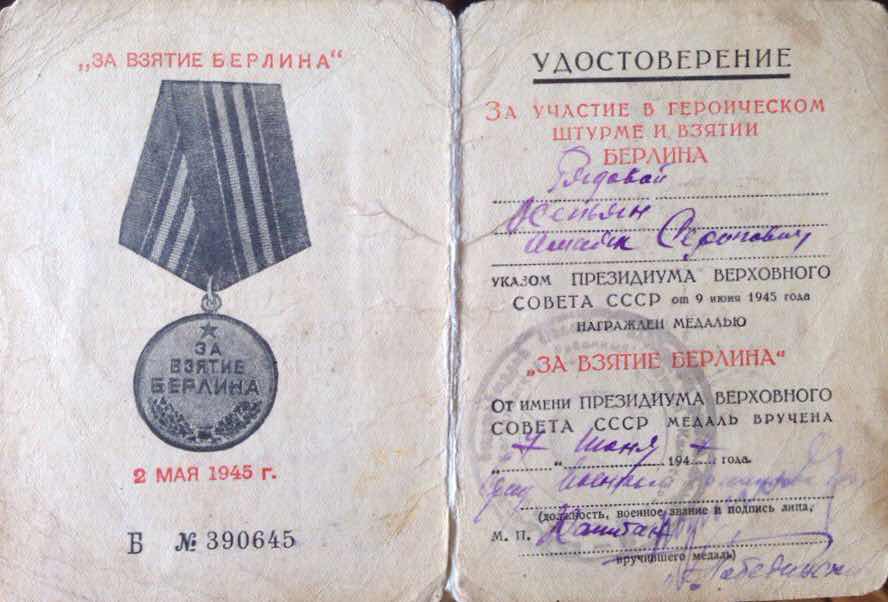 „ЗА ВЗЯТИЕ БЕРЛИНА“
ЗА
ВЗЯТИЕ
БЕРЛИНА
2 МАЯ 1945 г.
Б № 390645
УДОСТОВЕРЕНИЕ
ЗА УЧАСТИЕ В ГЕРОИЧЕСКОМ
ШТУРМЕ И ВЗЯТИИ
БЕРЛИНА
Рядовой
Серопович
УКАЗОМ ПРЕЗИДИУМА ВЕРХОВНОГО
СОВЕТА СССР от 9 июня 1945 года
НАГРАЖДЕН МЕДАЛЬЮ
„ЗА ВЗЯТИЕ БЕРЛИНА“
ОТ ИМЕНИ ПРЕЗИДИУМА ВЕРХОВНОГО
СОВЕТА СССР МЕДАЛЬ ВРУЧЕНА
„7“ Июня 194 года.
(должность, военное звание и подпись лица,
М. П. Капитан
вручившего медаль)